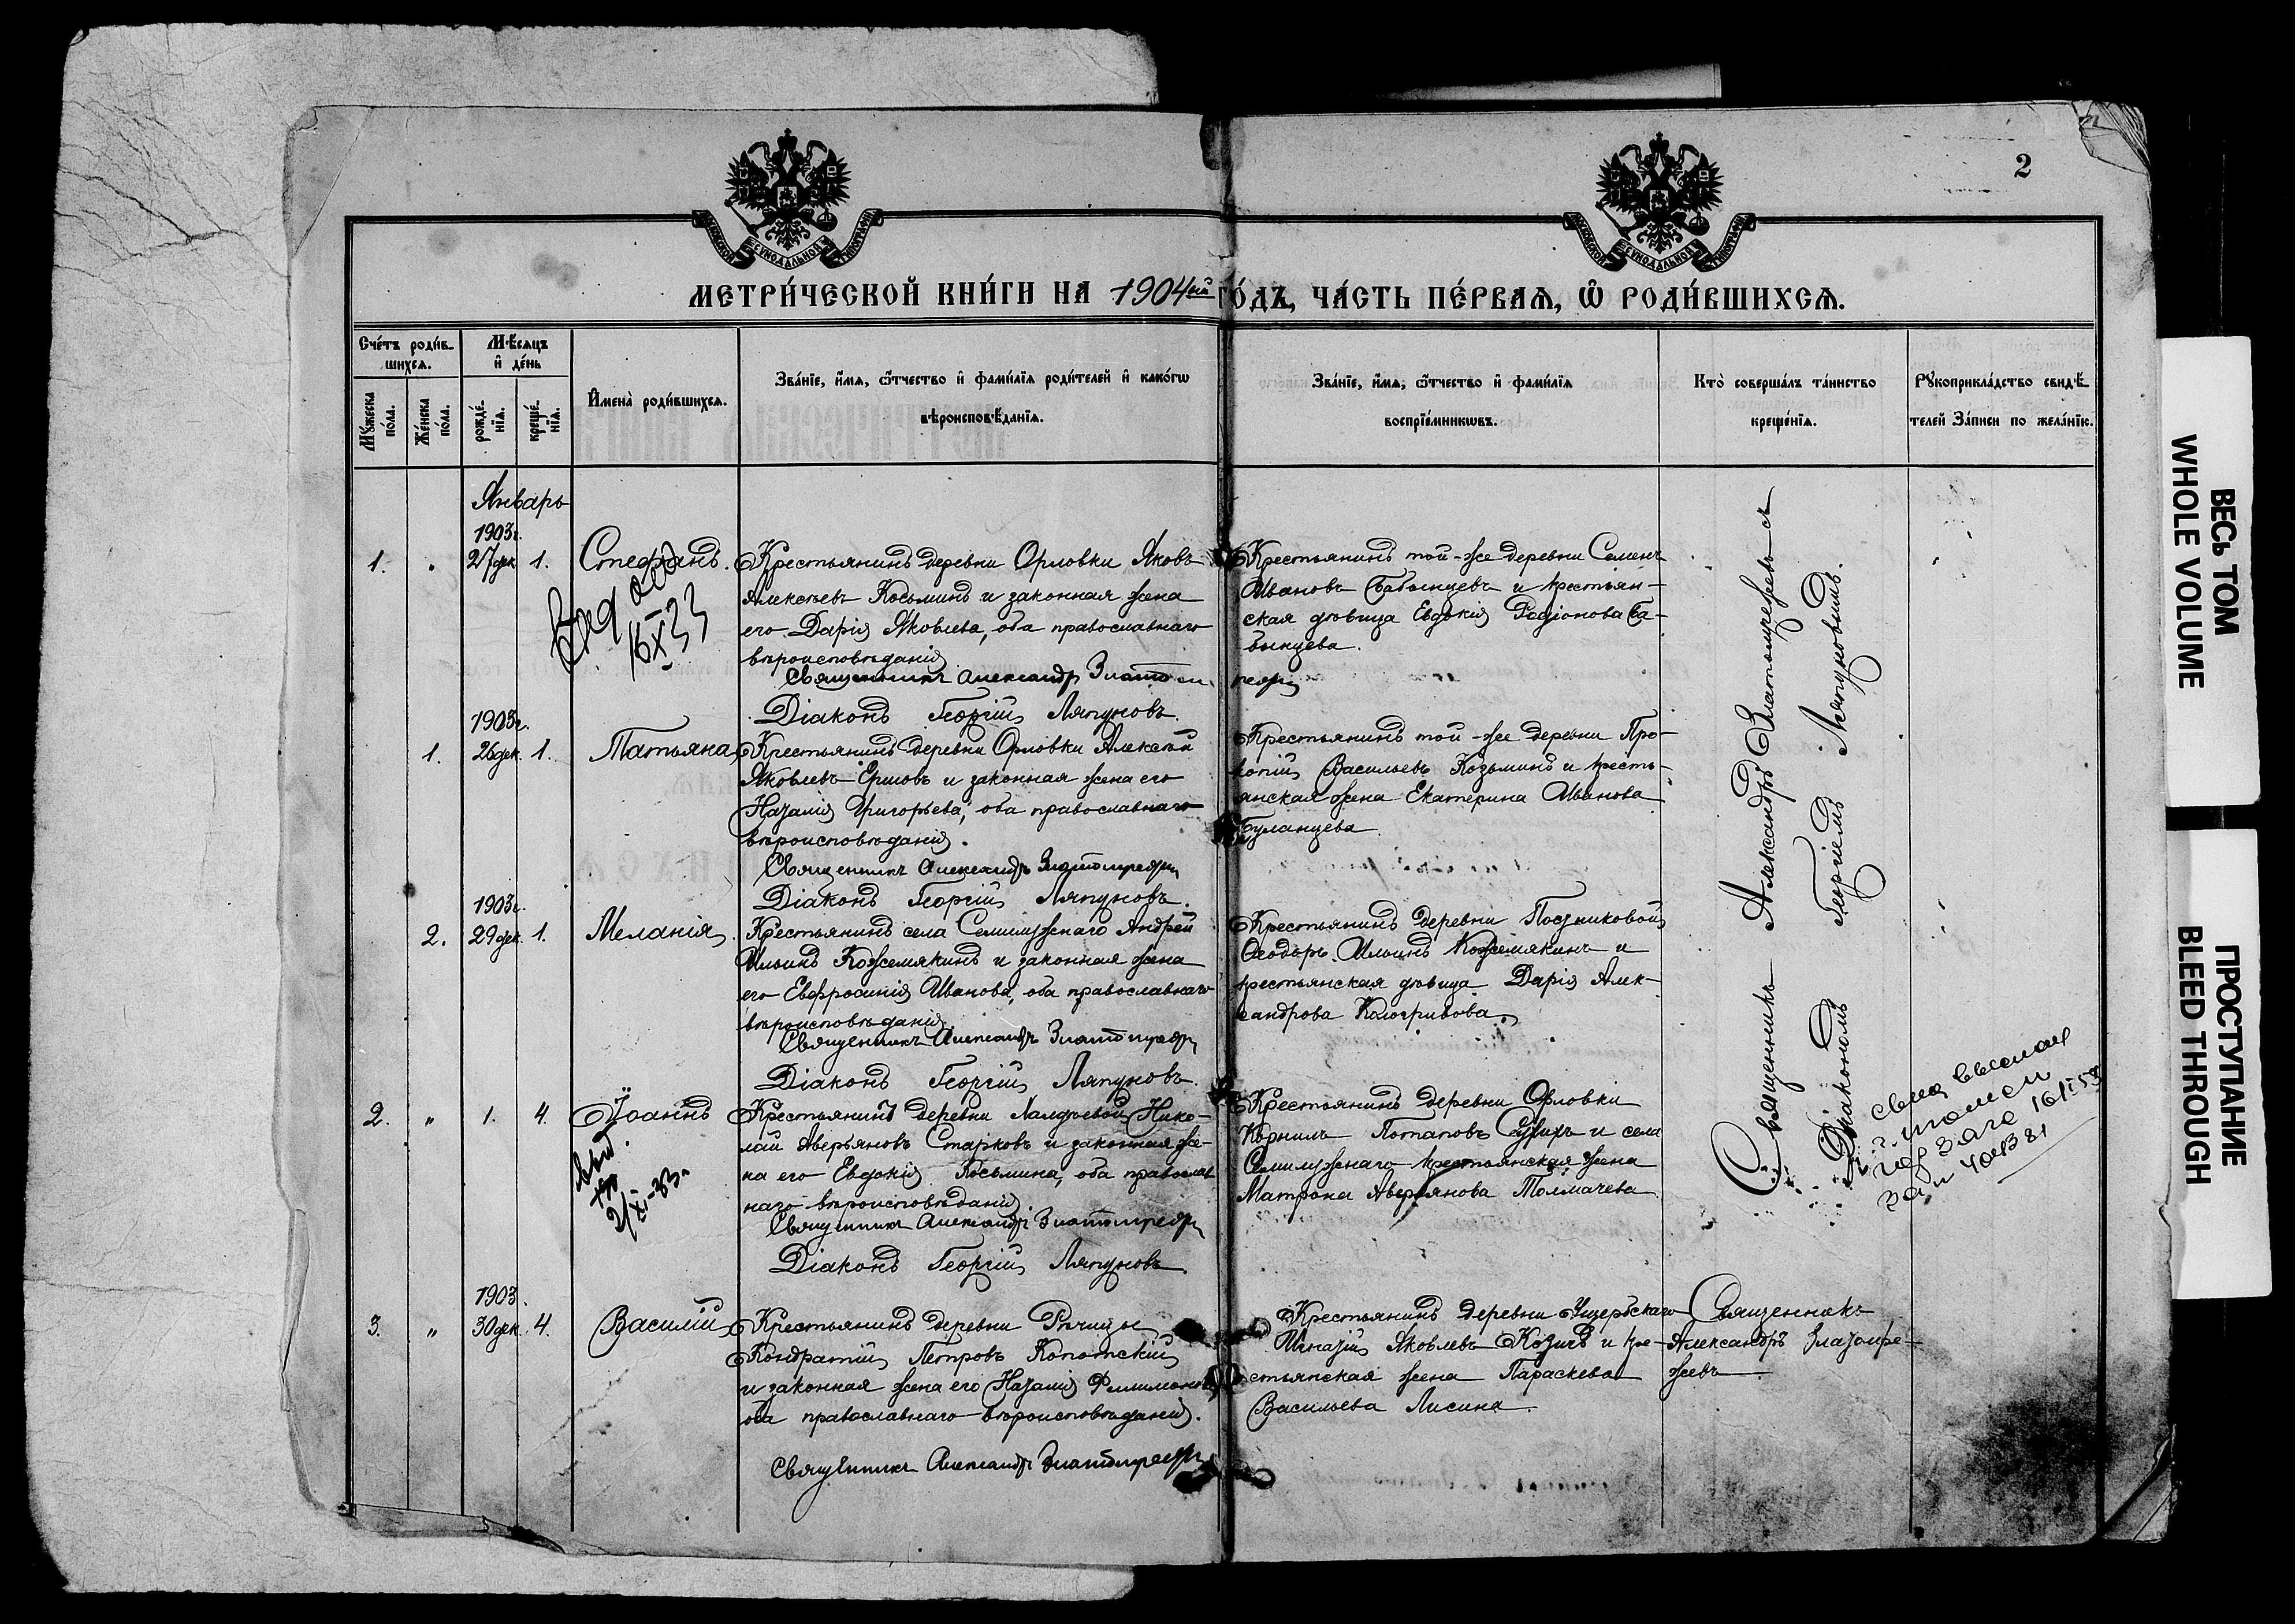 2
МОСКОВСКОЙ СѴНОДАЛЬНОЙ ТИПОГРАФІИ
МОСКОВСКОЙ СѴНОДАЛЬНОЙ ТИПОГРАФІИ
МЕТРИ́ЧЕСКОЙ КНИ́ГИ НА 1904ый ГО́ДЪ, ЧА́СТЬ ПЕ́РВАѦ, Ѡ҆ РОДИ́ВШИХСѦ.
Сче́тъ роди́в-
шихсѧ.
Мѣ́сѧцъ
и҆ де́нь
Мꙋ́жеска
по́ла.
Же́нска
по́ла.
рожде́-
нїѧ.
креще́-
нїѧ.
И҆мена̀ роди́вшихсѧ.
Зва́нїе, и҆́мѧ, ѻ҆́тчество и҆ фами́лїѧ роди́телей и҆ како́гѡ
вѣроисповѣ́данїѧ.
Зва́нїе, и҆́мѧ, ѻ҆́тчество и҆ фами́лїѧ
воспрїе́мникѡвъ.
Кто̀ соверша́лъ та́инство
креще́нїѧ.
Рꙋкоприкла́дство свидѣ́-
телей За́писи по жела́нїю.
Январь
1903г.
1. " 27дек 1. Стефанъ.
Крестьянинъ деревни Орловки Яковъ
Алексѣевъ Косьминъ и законная жена
его Дарія Яковлева, оба православнаго
вѣроисповѣданія
Священникъ Александръ Златомрежевъ
Діаконъ Георгій Ляпуновъ.
Крестьянинъ той-же деревни Семенъ
Ивановъ Бабынцевъ и крестьян-
ская дѣвица Евдокія Родіонова Ба-
бынцева.
16 XI 33
1903г.
1. 26дек. 1. Татьяна
Крестьянинъ деревни Орловки Алексѣй
Яковлевъ Ершовъ и законная жена его
Наталія Григорьева, оба православнаго
вѣроисповѣданія.
Священникъ Александръ Златомрежевъ
Діаконъ Георгій Ляпуновъ.
Крестьянинъ той-же деревни Про-
копій Васильевъ Козьминъ и кресть-
янская жена Екатерина Иванова
Буланцева.
1903г.
2. 29дек. 1. Меланія.
Крестьянинъ села Семилужнаго Андрей
Ильинъ Кожемякинъ и законная жена
его Евфросинія Иванова, оба православнаго
вѣроисповѣданія.
Священникъ Александръ Златомрежевъ
Діаконъ Георгій Ляпуновъ.
Крестьянинъ деревни Постниковой
Ѳеодоръ Ильинъ Кожемякинъ и
крестьянская дѣвица Дарія Алек-
сандрова Кологривова.
2. " 1. 4. Іоаннъ
Крестьянинъ деревни Халдѣевой Нико-
лай Аверьяновъ Старковъ и законная же-
на его Евдокія Косьмина, оба православ
наго вѣроисповѣданія
Священникъ Александръ Златомрежевъ
Діаконъ Георгій Ляпуновъ
Крестьянинъ деревни Орловки
Корнилъ Потаповъ Сухихъ и села
Семилужнаго крестьянская жена
Матрона Аверьянова Толмачева
Священникъ Александръ Златомрежевъ съ
Діакономъ Георгіемъ Ляпуновымъ.
1903.
3. " 30дек. 4. Василій
Крестьянинъ деревни Рѣчицы
Кондратій Петровъ Копотскій
и законная жена его Наталія Филимонова
оба православнаго вѣроисповѣданія.
Священникъ Александръ Златомрежевъ
Крестьянинъ деревни Ущербскаго
Игнатій Яковлевъ Козичъ и кре-
стьянская жена Параскева
Васильева Лисина.
Священникъ
Александръ Златомре-
жевъ
ВЕСЬ ТОМ
WHOLE VOLUME
ПРОСТУПАНИЕ
BLEED THROUGH